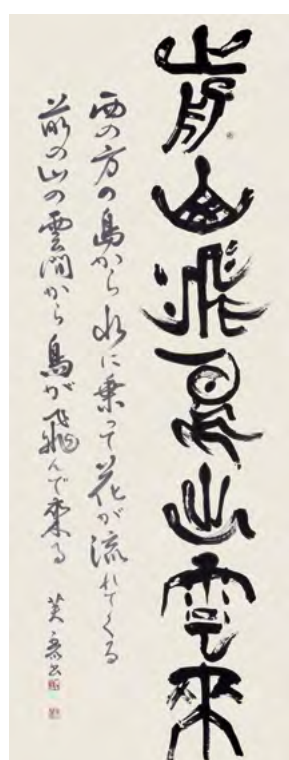 前山飛鳥出雲來
西の方の島から水に乗って花が流れてくる
前の山の雲間から鳥が飛んで来る